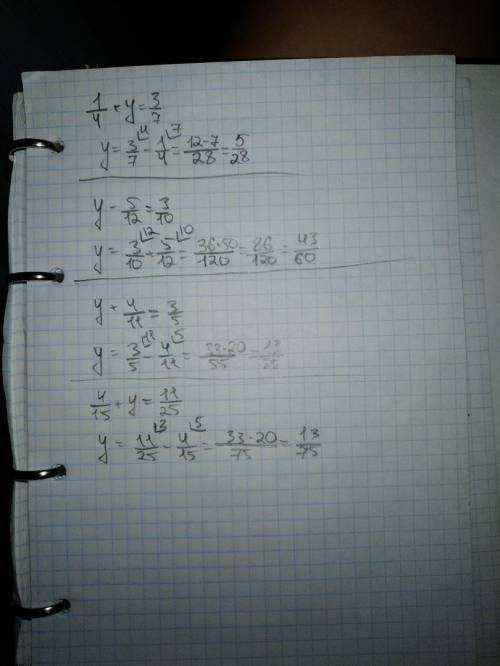 1/4 + y = 3/7
y = 3/7 ⌊4 - 1/4 ⌊7 = 12-7/28 = 5/28
y - 5/12 = 3/10
y = 3/10 ⌊12 + 5/12 ⌊10 = 36+50/120 = 86/120 = 43/60
y + 4/11 = 3/5
y = 3/5 ⌊11 - 4/11 ⌊5 = 33-20/55 = 13/55
4/15 + y = 11/25
y = 11/25 ⌊3 - 4/15 ⌊5 = 33-20/75 = 13/75